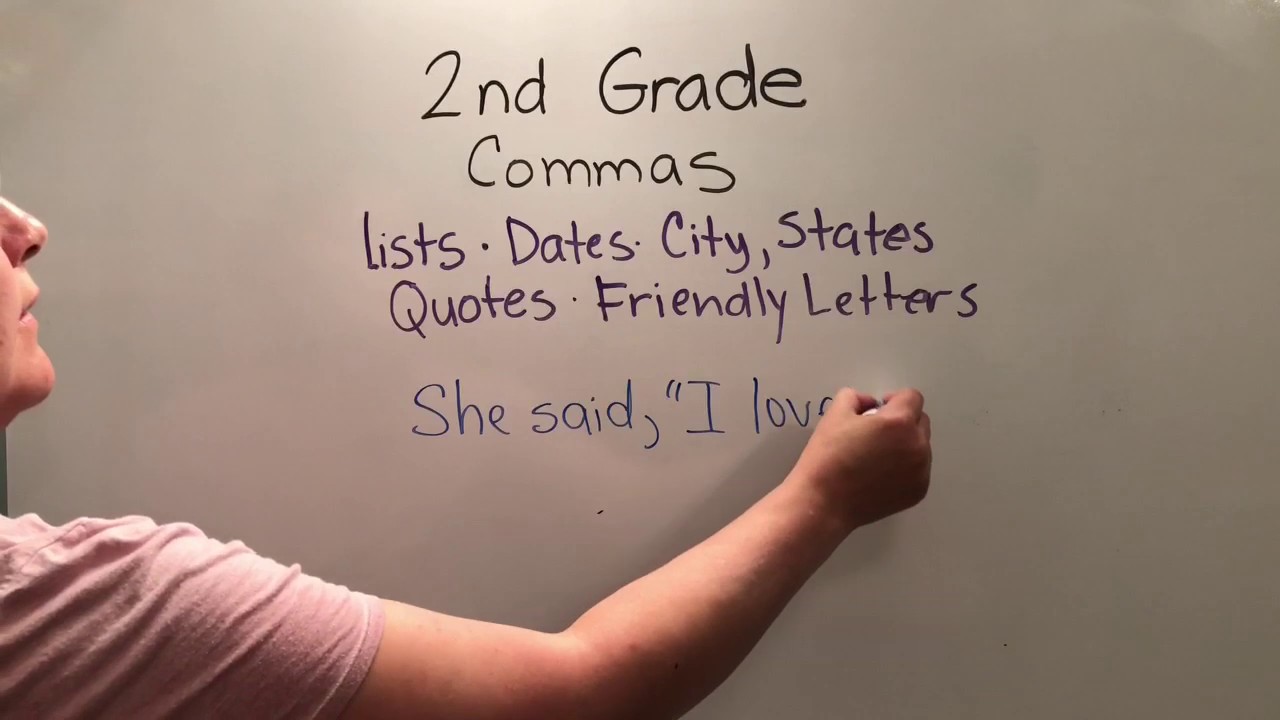 2nd Grade
Commas
lists · Dates · City, States
Quotes · Friendly Letters
She said, "I